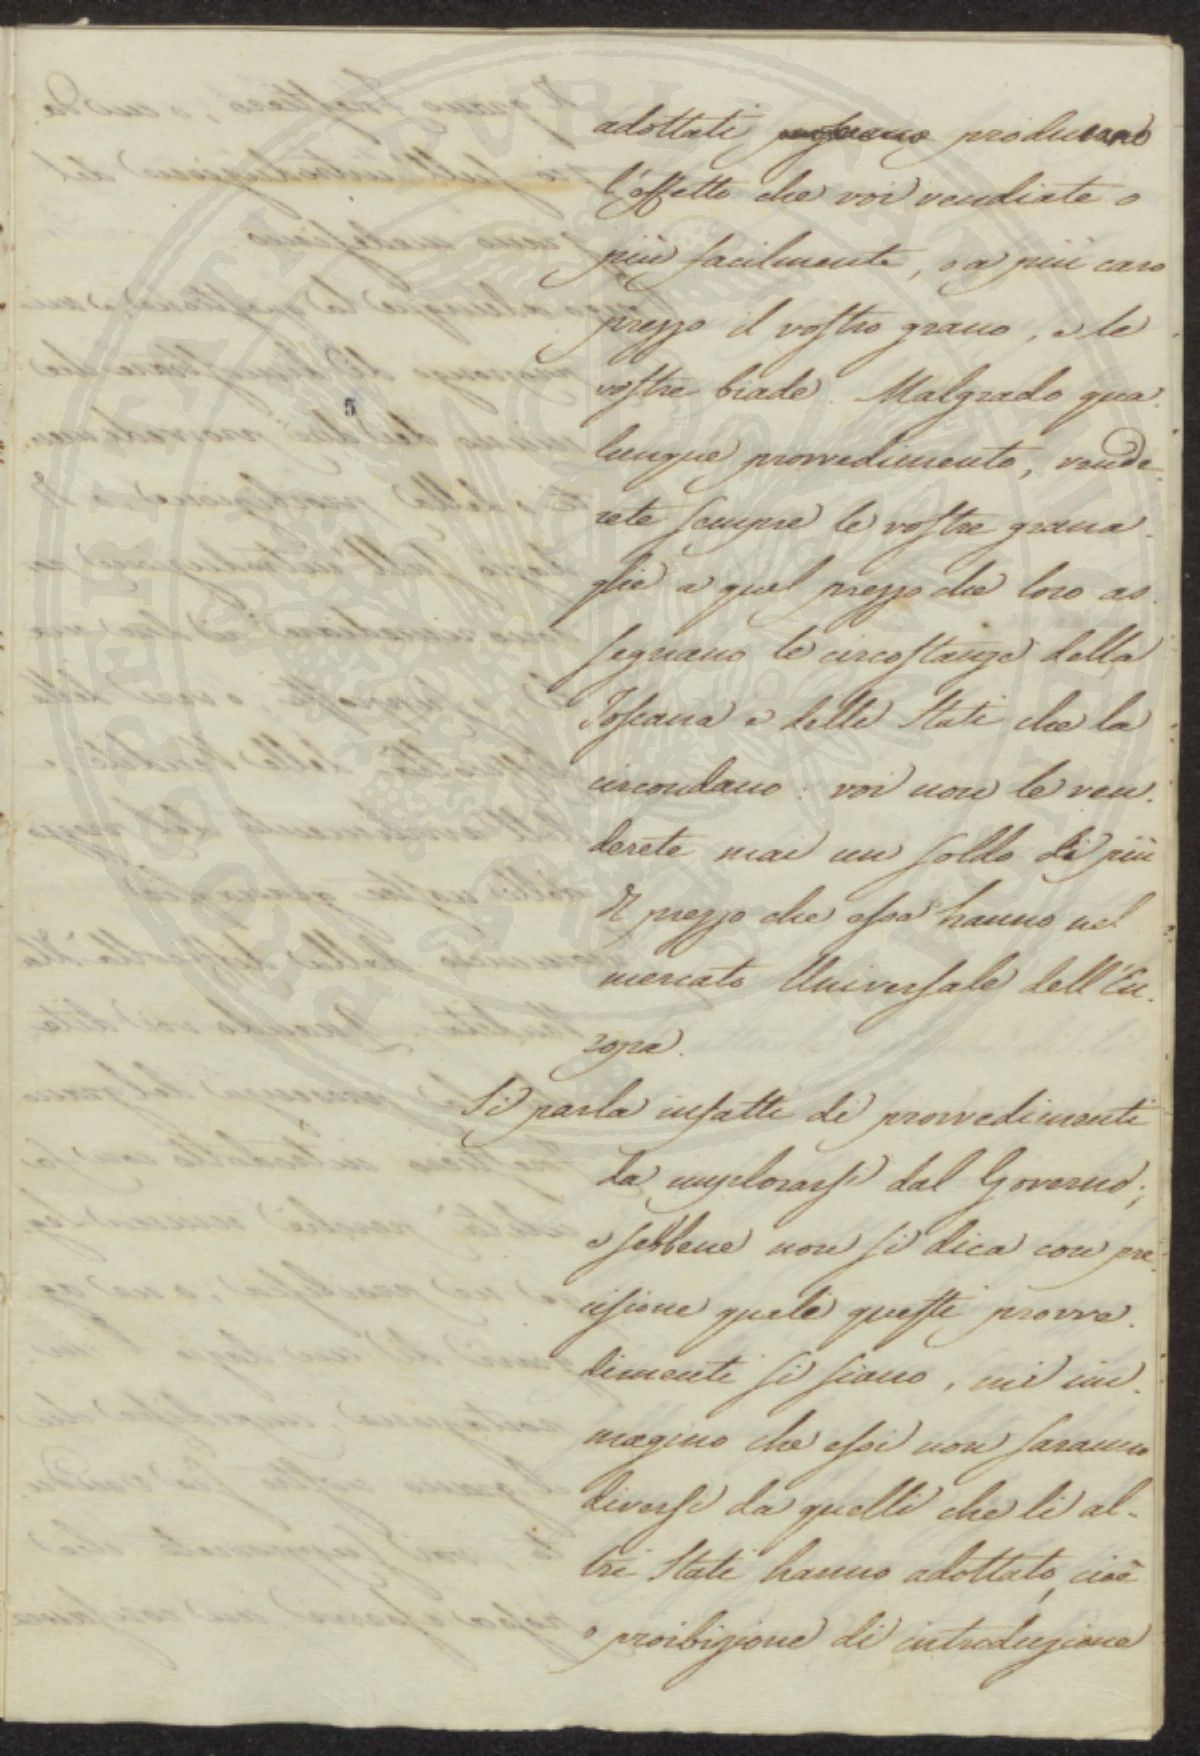 adottati producano
l'effetto che voi vendiate o
più facilmente, o a più caro
prezzo il vostro grano, e le
vostre biade. Malgrado qua-
lunque provvedimento, vende-
rete sempre le vostre grana-
glie a quel prezzo che loro as-
segnano le circostanze della
Toscana e delli Stati che la
circondano: voi non le ven-
derete mai un soldo di più
Il prezzo che esse hanno nel
mercato Universale dell'Eu-
ropa.
5
Si parla infatti di provvedimenti
da implorarsi dal Governo;
e sebbene non si dica con pre-
cisione quali questi provve-
dimenti si siano, mi im-
magino che essi non saranno
diversi da quelli che li al-
tri Stati hanno adottato, cioè
o proibizione di introduzione